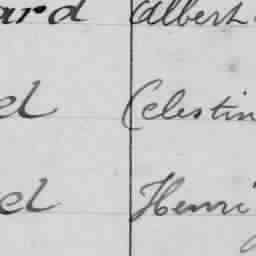 ard Albert
el Celestin
el Henri